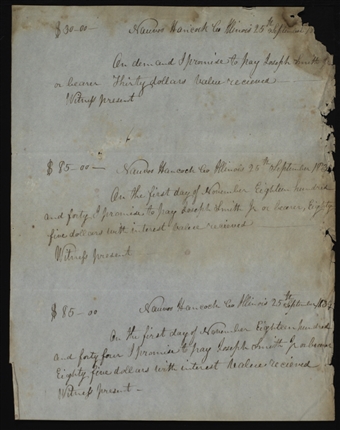 $30-00 Nauvoo Hancock Co Illinois 25th September
On demand I promise to pay Joseph Smith Jr
or bearer Thirty dollars value recieved
Witness present
$85-00- Nauvoo Hancock Co, Illinois 25th September 183
On the first day of November Eighteen hundred
and forty I promise to pay Joseph Smith Jr or bearer, Eighty
five dollars with interest value recieved
Witness present
$85-00 Nauvoo Hancock Co Illinois 25th September 183
On the first day of November Eighteen hundred
and forty four I promise to pay Joseph Smith Jr or bearer
Eighty five dollars with interest value recieved
Witness present -